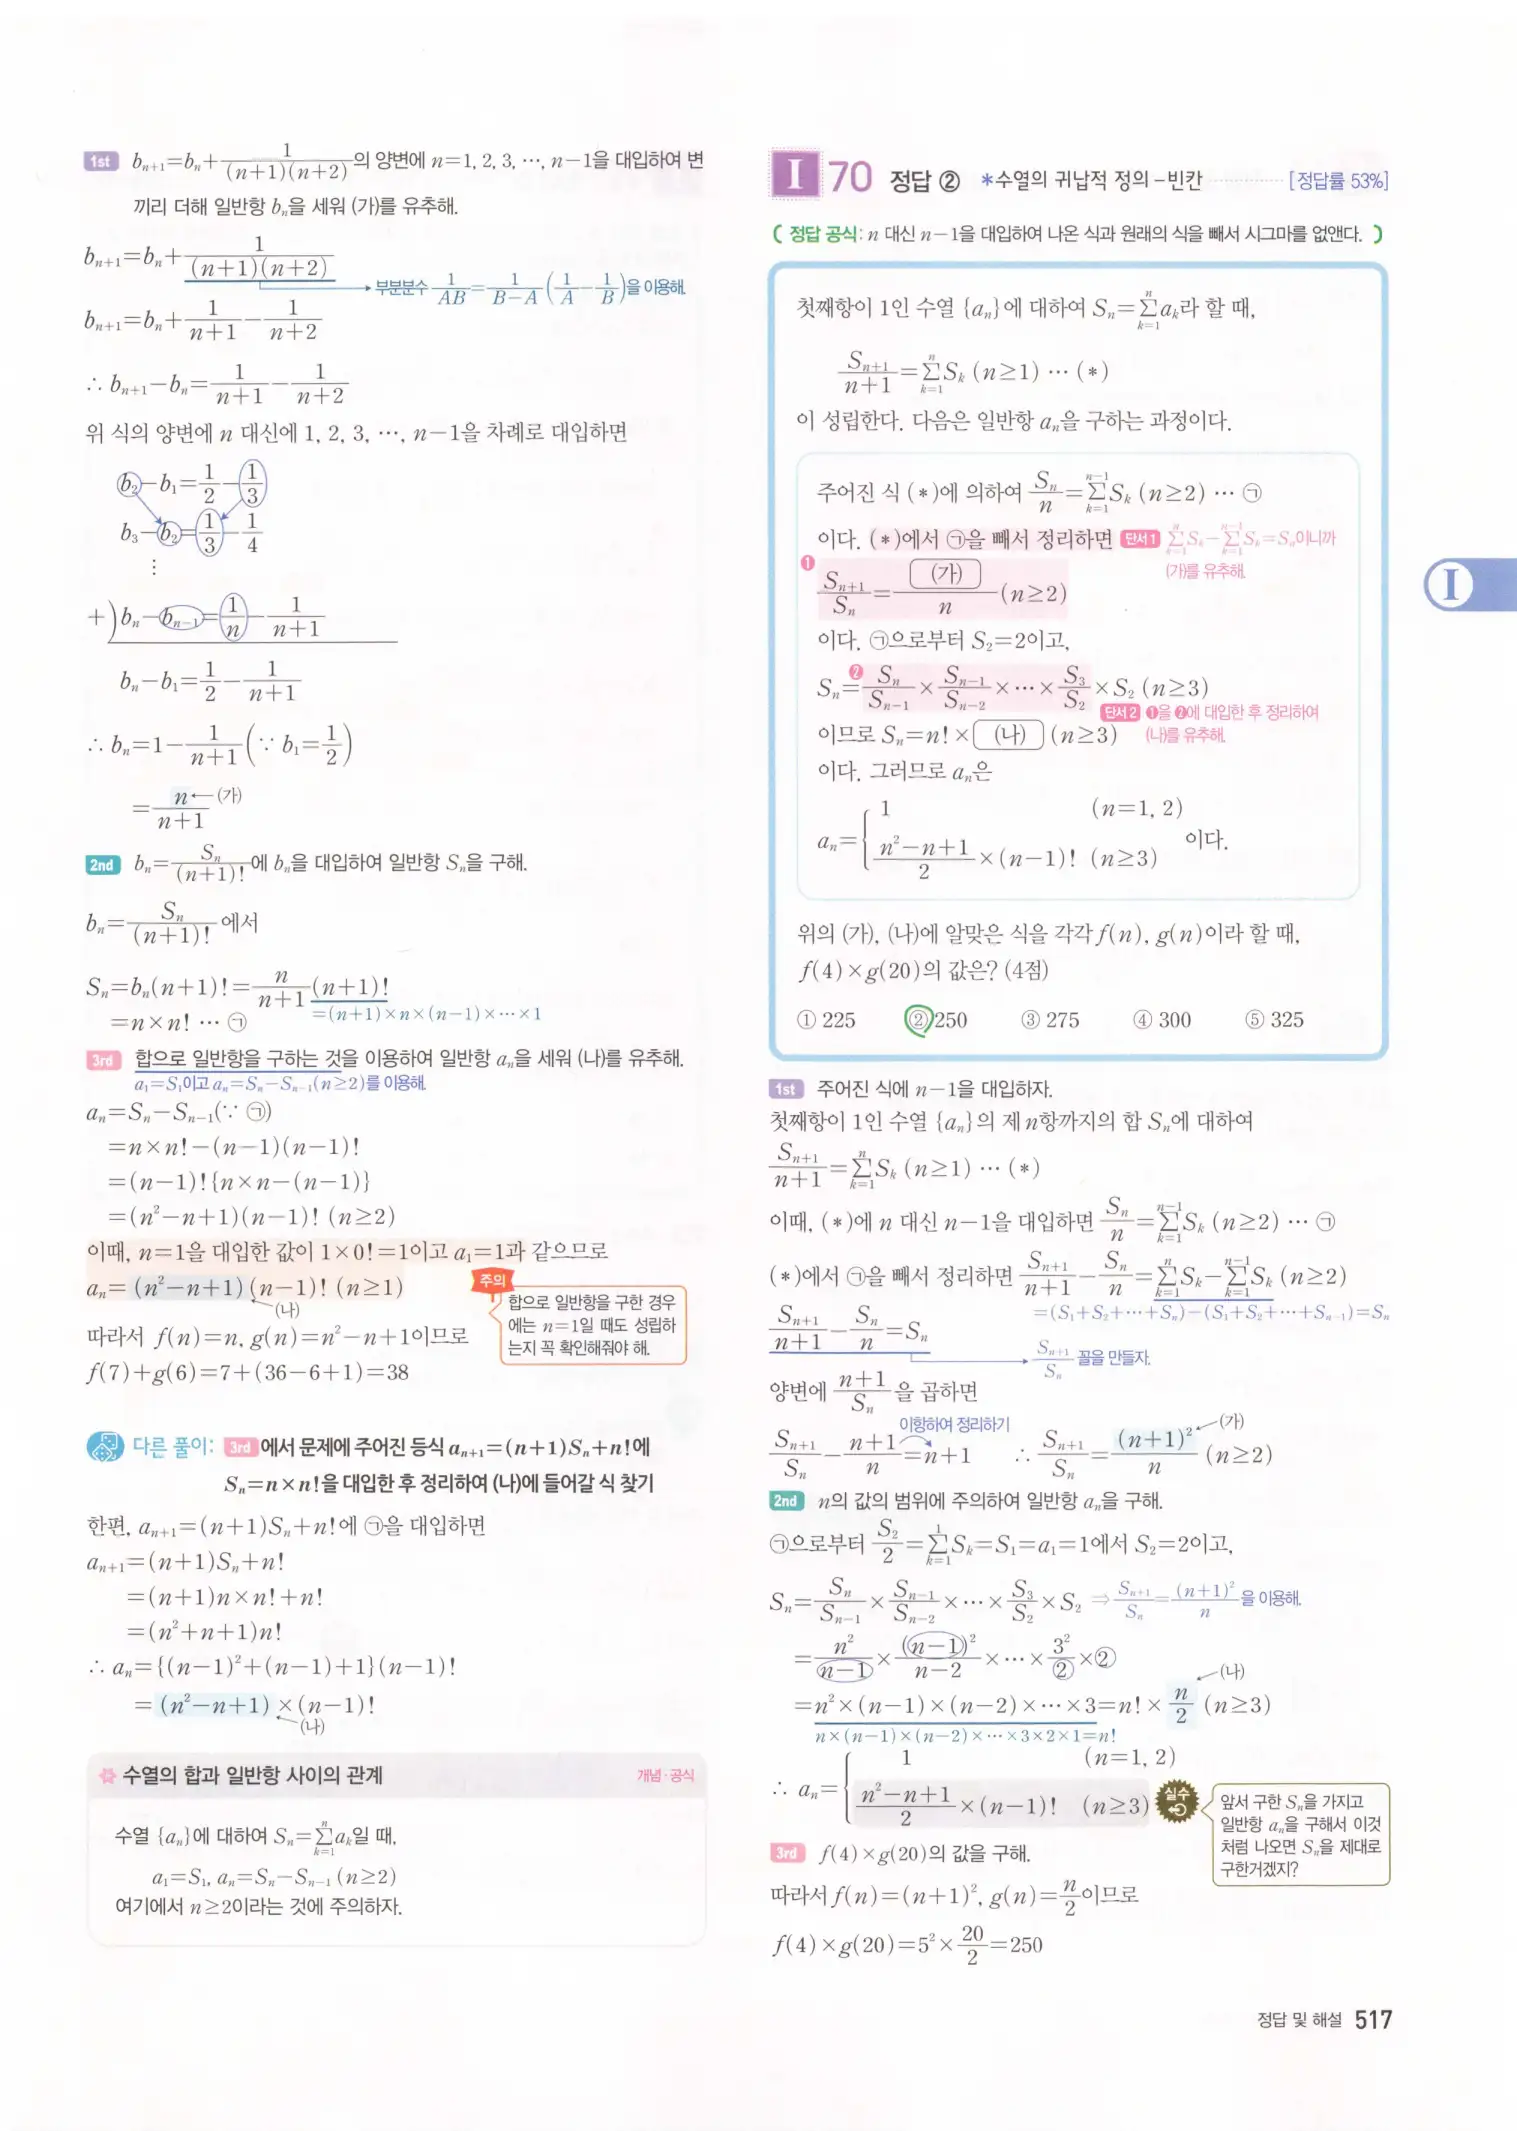 1st b_{n+1}=b_n+\frac{1}{(n+1)(n+2)}의 양변에 n=1, 2, 3, ⋯, n-1을 대입하여 변
끼리 더해 일반항 b_n을 세워 (가)를 유추해.
b_{n+1}=b_n+\frac{1}{(n+1)(n+2)}
부분분수 \frac{1}{AB}=\frac{1}{B-A}(\frac{1}{A}-\frac{1}{B})을 이용해.
b_{n+1}=b_n+\frac{1}{n+1}-\frac{1}{n+2}
∴ b_{n+1}-b_n=\frac{1}{n+1}-\frac{1}{n+2}
위 식의 양변에 n 대신에 1, 2, 3, ⋯, n-1을 차례로 대입하면
b_2-b_1=\frac{1}{2}-\frac{1}{3}
b_3-b_2=\frac{1}{3}-\frac{1}{4}
⋮
+) b_n-b_{n-1}=\frac{1}{n}-\frac{1}{n+1}
b_n-b_1=\frac{1}{2}-\frac{1}{n+1}
∴ b_n=1-\frac{1}{n+1}(∵ b_1=\frac{1}{2})
=\frac{n}{n+1} ←(가)
2nd b_n=\frac{S_n}{(n+1)!}에 b_n을 대입하여 일반항 S_n을 구해.
b_n=\frac{S_n}{(n+1)!}에서
S_n=b_n(n+1)!=\frac{n}{n+1}(n+1)!
=(n+1)×n×(n-1)×⋯×1
=n×n! ⋯ ㉠
3rd 합으로 일반항을 구하는 것을 이용하여 일반항 a_n을 세워 (나)를 유추해.
a_1=S_1이고 a_n=S_n-S_{n-1}(n≥2)를 이용해.
a_n=S_n-S_{n-1}(∵ ㉠)
=n×n!-(n-1)(n-1)!
=(n-1)!{n×n-(n-1)}
=(n²-n+1)(n-1)! (n≥2)
이때, n=1을 대입한 값이 1×0!=1이고 a_1=1과 같으므로
a_n=(n²-n+1)(n-1)! (n≥1)
(나)
따라서 f(n)=n, g(n)=n²-n+1이므로
f(7)+g(6)=7+(36-6+1)=38
주의
합으로 일반항을 구한 경우
에는 n=1일 때도 성립하
는지 꼭 확인해줘야 해.
다른 풀이: 3rd 에서 문제에 주어진 등식 a_{n+1}=(n+1)S_n+n!에
S_n=n×n!을 대입한 후 정리하여 (나)에 들어갈 식 찾기
한편, a_{n+1}=(n+1)S_n+n!에 ㉠을 대입하면
a_{n+1}=(n+1)S_n+n!
=(n+1)n×n!+n!
=(n²+n+1)n!
∴ a_n={(n-1)²+(n-1)+1}(n-1)!
=(n²-n+1)×(n-1)!
(나)
수열의 합과 일반항 사이의 관계 개념·공식
수열 {a_n}에 대하여 S_n=\sum_{k=1}^{n}a_k일 때,
a_1=S_1, a_n=S_n-S_{n-1} (n≥2)
여기에서 n≥2이라는 것에 주의하자.
I 70 정답 ② *수열의 귀납적 정의-빈칸 [정답률 53%]
( 정답 공식: n 대신 n-1을 대입하여 나온 식과 원래의 식을 빼서 시그마를 없앤다. )
첫째항이 1인 수열 {a_n}에 대하여 S_n=\sum_{k=1}^{n}a_k라 할 때,
\frac{S_{n+1}}{n+1}=\sum_{k=1}^{n}S_k (n≥1) ⋯ (*)
이 성립한다. 다음은 일반항 a_n을 구하는 과정이다.
주어진 식 (*)에 의하여 \frac{S_n}{n}=\sum_{k=1}^{n-1}S_k (n≥2) ⋯ ㉠
이다. (*)에서 ㉠을 빼서 정리하면 단서1 \sum_{k=1}^{n}S_k-\sum_{k=1}^{n-1}S_k=S_n이니까
(가)를 유추해.
❶ \frac{S_{n+1}}{S_n}=\frac{(가)}{n} (n≥2)
이다. ㉠으로부터 S_2=2이고,
S_n=❷\frac{S_n}{S_{n-1}}×\frac{S_{n-1}}{S_{n-2}}×⋯×\frac{S_3}{S_2}×S_2 (n≥3)
단서2 ❶을 ❷에 대입한 후 정리하여
이므로 S_n=n!×(나) (n≥3) (나)를 유추해.
이다. 그러므로 a_n은
a_n={ 1 (n=1, 2)
\frac{n²-n+1}{2}×(n-1)! (n≥3) 이다.
위의 (가), (나)에 알맞은 식을 각각 f(n), g(n)이라 할 때,
f(4)×g(20)의 값은? (4점)
① 225 ② 250 ③ 275 ④ 300 ⑤ 325
1st 주어진 식에 n-1을 대입하자.
첫째항이 1인 수열 {a_n}의 제n항까지의 합 S_n에 대하여
\frac{S_{n+1}}{n+1}=\sum_{k=1}^{n}S_k (n≥1) ⋯ (*)
이때, (*)에 n 대신 n-1을 대입하면 \frac{S_n}{n}=\sum_{k=1}^{n-1}S_k (n≥2) ⋯ ㉠
(*)에서 ㉠을 빼서 정리하면 \frac{S_{n+1}}{n+1}-\frac{S_n}{n}=\sum_{k=1}^{n}S_k-\sum_{k=1}^{n-1}S_k (n≥2)
=(S_1+S_2+⋯+S_n)-(S_1+S_2+⋯+S_{n-1})=S_n
\frac{S_{n+1}}{n+1}-\frac{S_n}{n}=S_n
\frac{S_{n+1}}{S_n} 꼴을 만들자.
양변에 \frac{n+1}{S_n}을 곱하면
이항하여 정리하기
\frac{S_{n+1}}{S_n}-\frac{n+1}{n}=n+1 ∴ \frac{S_{n+1}}{S_n}=\frac{(n+1)²}{n} (n≥2)
(가)
2nd n의 값의 범위에 주의하여 일반항 a_n을 구해.
㉠으로부터 \frac{S_2}{2}=\sum_{k=1}^{1}S_k=S_1=a_1=1에서 S_2=2이고,
S_n=\frac{S_n}{S_{n-1}}×\frac{S_{n-1}}{S_{n-2}}×⋯×\frac{S_3}{S_2}×S_2 ⇒ \frac{S_{n+1}}{S_n}=\frac{(n+1)²}{n}을 이용해.
=\frac{n²}{n-1}×\frac{(n-1)²}{n-2}×⋯×\frac{3²}{2}×2
(나)
=n²×(n-1)×(n-2)×⋯×3=n!×\frac{n}{2} (n≥3)
n×(n-1)×(n-2)×⋯×3×2×1=n!
∴ a_n={ 1 (n=1, 2)
\frac{n²-n+1}{2}×(n-1)! (n≥3)
실수
앞서 구한 S_n을 가지고
일반항 a_n을 구해서 이것
처럼 나오면 S_n을 제대로
구한거겠지?
3rd f(4)×g(20)의 값을 구해.
따라서 f(n)=(n+1)², g(n)=\frac{n}{2}이므로
f(4)×g(20)=5²×\frac{20}{2}=250
I
정답 및 해설 517